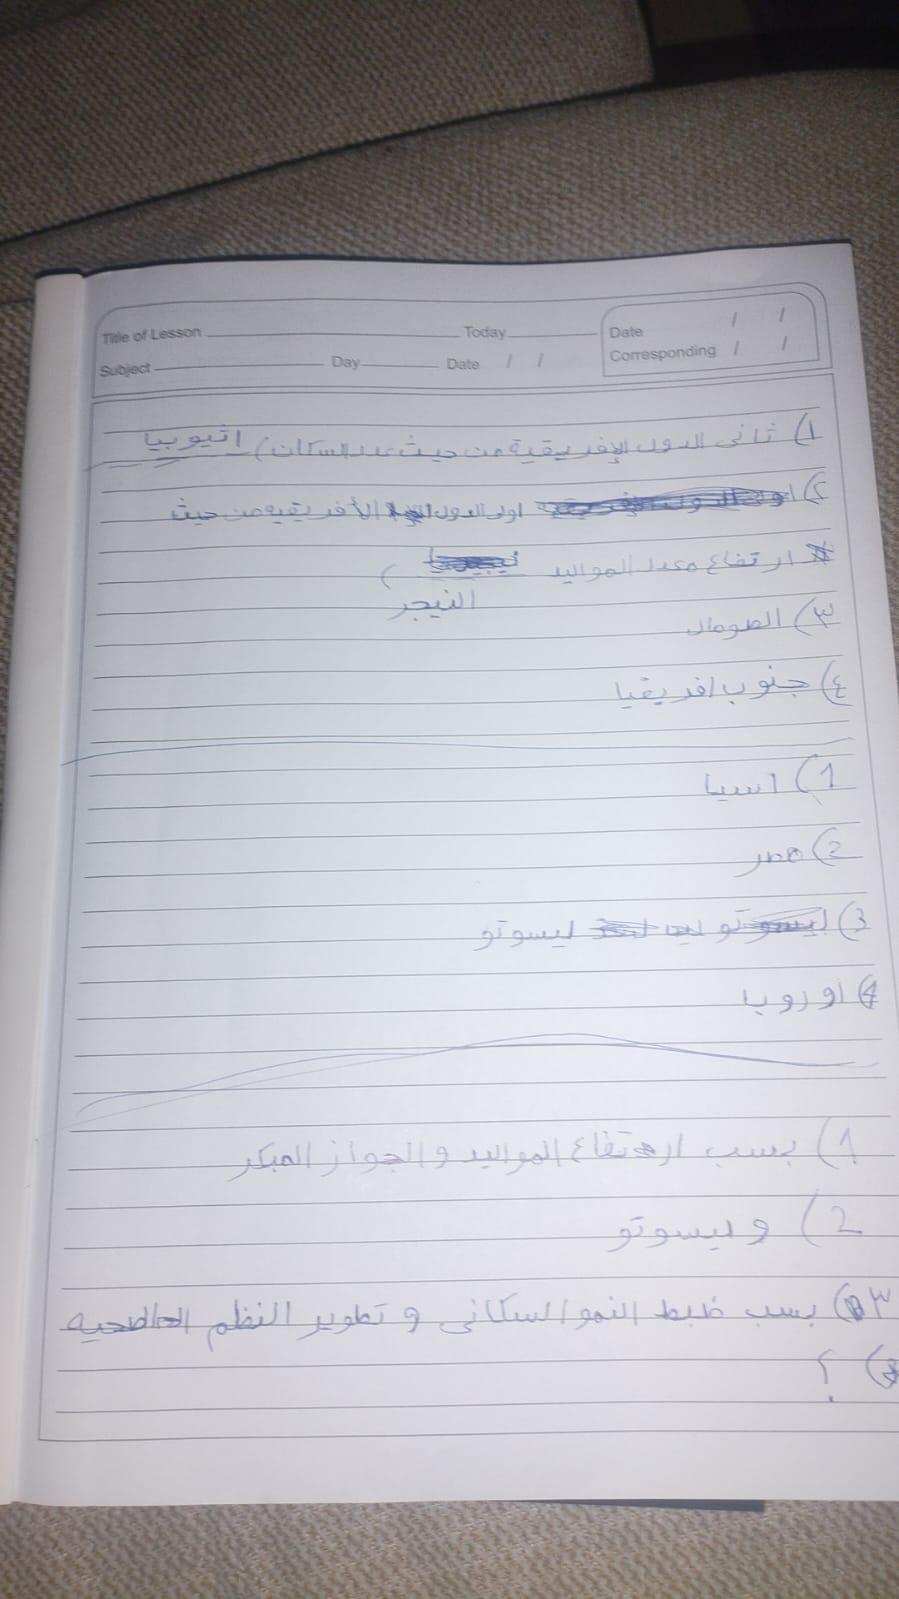 Title of Lesson Today Date / /
Subject Day Date / / Corresponding / /
1) ثانى الدول الإفريقية من حيث عدد السكان) اثيوبيا
2) اولى الدول الأفريقيه من حيث
ارتفاع معدل المواليد )
النيجر
٣) الصومال
٤) جنوب افريقيا
1) اسيا
2) مصر
3) ليسوتو
4) اوروبا
1) بسب ارتفاع المواليد و الجواز المبكر
2) و ليسوتو
٣) بسب ضبط النمو السكانى و تطوير النظم الصحيه
) ؟